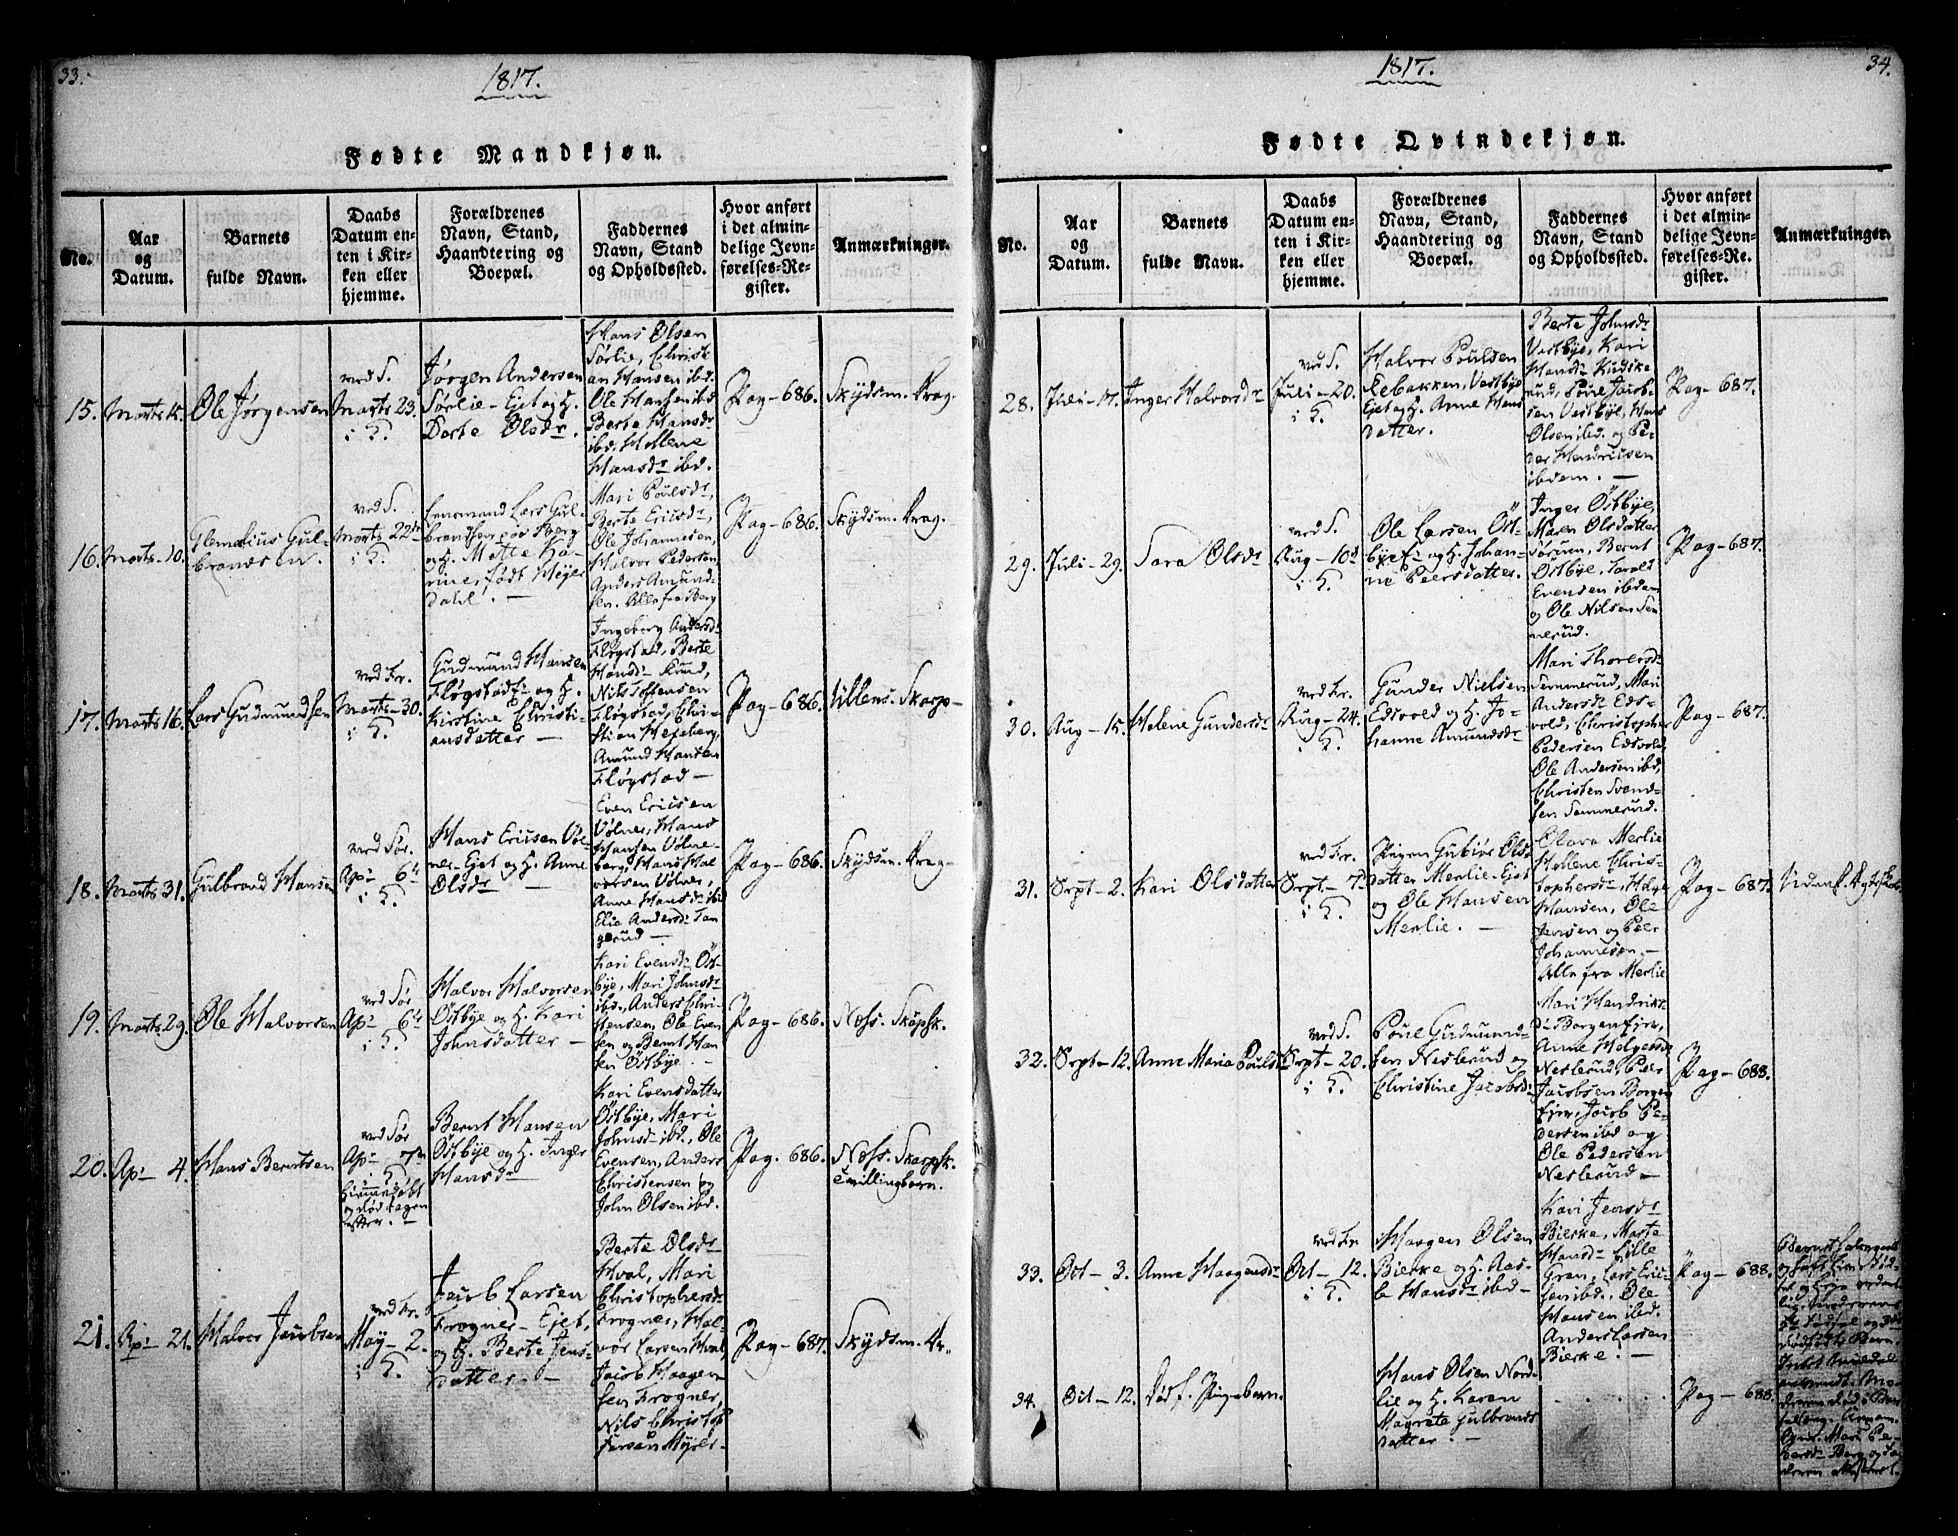 33.
1817.
Fødte Mandkjøn.
No.
Aar
og
Datum.
Barnets
fulde Navn.
Daabs
Datum en-
ten i Kir-
ken eller
hjemme.
Forældrenes
Navn, Stand,
Haandtering og
Boepæl.
Faddernes
Navn, Stand
og Opholdssted.
Hvor anført
i det almin-
delige Jevn-
førelses-Re-
gister.
Anmærkninger.
15.
Marts 15.
Ole Jørgensen
ved S.
Marts 23.
i K.
Jørgen Andersen
Sørlie - Ejet og H.
Dorte Olsdr.
Hans Olsen
Sørlie, Christi-
an Hansen ibd.
Ole Hansen ibd
Berte Hansdr
ibd. Hellene
Hansdr ibd.
Pag - 686.
Skydsm. Prag.
16.
Marts - 10.
Gul-
brandsen.
ved S.
Marts 22de
i K.
Lensmand Lars Gul-
brandsen paa Berg
og H. Mette Ka-
rine, født Mejer
dahl. -
Mari Poulsdr,
Berte Ericsdr,
Ole Johannesen,
Halvor Pedersen
Anders Amund-
sen. Alle fra Berg
Pag - 686.
Skydsm. Prag.
17.
Marts 16.
Lars Gudmundsen
ved Fr.
Marts - 30.
i K.
Gudmund Hansen
Fløgstad og H.
Kirstine Christi-
ansdatter -
Ingeborg Andersdr
Fløgstad, Berte
Hansdr Rund,
Nils Toftensen
Fløgstad, Chri-
stian Hexeberg,
Amund Hansen
Fløgstad -
Pag - 686.
Ullens. Skarp-
18.
Marts 31.
Gulbrand Hansen
ved Sør.
Apr 6te
i K.
Hans Ericsen Vøl-
ner - Ejet og H. Anne
Olsdr -
Even Ericsen
Vølner, Hans
Hansen Vølne-
berg, Hans Hal
vorsen Vølner,
Anne Hansdr ibd
Elie Andersdr Tan
gerud -
Pag - 686.
Skydsm. Prag-
19.
Marts 29.
Ole Halvorsen
ved Sør
Apr 6te
i K.
Halvor Halvorsen
Østbye og H. Kari
Johnsdatter -
Kari Evensdr Øst-
bye, Mari Johnsdr
ibd., Anders Chri-
stensen, Ole Even
sen og Bernt Han
sen Østbye -
Pag - 686.
Næss. Skarpsk.
20.
Apr 4.
Hans Berntsen
ved Sør
Apr 7de
i K.
hjemmedøbt
og død dagen
efter. -
Bernt Hansen
Østbye og H. Inger
Hansdr
Kari Evensdatter
Østbye, Mari
Johnsdr ibd., Ole
Evensen, Anders
Christensen og
John Olsen ibd.
Pag. 686.
Næss. Skarpsk.
Tvillingbarn.
21.
Apr 21.
Halvor Jacobsen
ved Fr.
May - 2.
i K.
Jacob Larsen
Frogner - Ejet,
og H. Berte Jens-
datter. -
Berte Olsdr
Hval, Mari
Christophersdr
Frogner, Hal
vor Larsen Hval,
Jacob Haagen
sen Frogner,
Nils Christof
fersen Myrer-
Pag - 687.
Skydsm. Pr.
34.
1817.
Fødte Qvindekjøn.
No.
Aar
og
Datum.
Barnets
fulde Navn.
Daabs
Datum en-
ten i Kir-
ken eller
hjemme.
Forældrenes
Navn, Stand,
Haandtering og
Boepæl.
Faddernes
Navn, Stand
og Opholdssted.
Hvor anført
i det almin-
delige Jevn-
førelses-Re-
gister.
Anmærkninger.
28.
Juli - 17.
Inger Halvorsdr
ved S.
Juli - 20.
i K.
Halvor Poulsen
Rebakken, Vestbye
Ejet og H. Anne Hans
datter.
Berte Johnsdr
Vestbye, Kari
Hansdr
rud, Poul Jacob-
sen Vestbye, Hans
Olsen ibd. og Pe-
der Hendricsen
ibdem. -
Pag - 687.
29.
Juli - 29.
Sara Olsdr
ved S.
Aug - 10d
i K.
Ole Larsen Øst-
bye og H. Johan-
ne Peersdatter.
Inger Østbye,
Maren Olsdatter
Sørum, Bernt
Østbye, Tarald
Evensen ibdem
og Ole Nilsen Sem
merud.
Pag - 687.
30.
Aug - 15.
Helene Gundersdr
ved Fr.
Aug - 24.
i K.
Gunder Nielsen
Edsvold og H. Jo-
hanne Amundsdr
Mari Thoresdr
Semmerud, Mari
Andersdr Eds-
vold, Christopher
Pedersen Edsvold,
Ole Andersen ibd,
Christen Svend-
sen Semmerud.
Pag - 687.
31.
Sept - 2.
Kari Olsdatter
ved Fr.
Sept - 7d
i K.
Pigen Gubiør Ols-
datter Merlie - Ejet
og Ole Hansen
Merlie. -
Olava Merlie
Hellene Chris-
tophersdr, Helge
Hansen, Ole
Jensen og Peer
Johannesen. -
Alle fra Merlie
Pag - 687.
32.
Sept - 12.
Anne Maria Poulsdr
ved S.
Sept - 20.
i K.
Poul Gudmund-
sen Neslerud og
Christine Jacobsdr
Mari Hendriks
dr Borgen,
Anne Helgesdr
Neslerud, Peer
Jacobsen Borgen
Jacob Pe-
dersen ibd og
Ole Pedersen
Neslerud -
Pag - 688.
33.
Oct - 3.
Anne Haagensdr
ved Fr
Oct - 12.
i K.
Haagen Olsen
Bierke og H. Aas-
e Hansdr ibd -
Kari Jensdr
Bierke, Marte
Hansdr Lille
Gran, Lars Eric-
sen ibd. Ole
Hansen ibd.
Anders Larsen
Bierke. -
Pag - 688.
34.
Oct - 12.
Dødf. Pigebarn.
Hans Olsen Nord-
lie og H. Karen
Magrete Gulbrands
datter. -
Pag - 688.